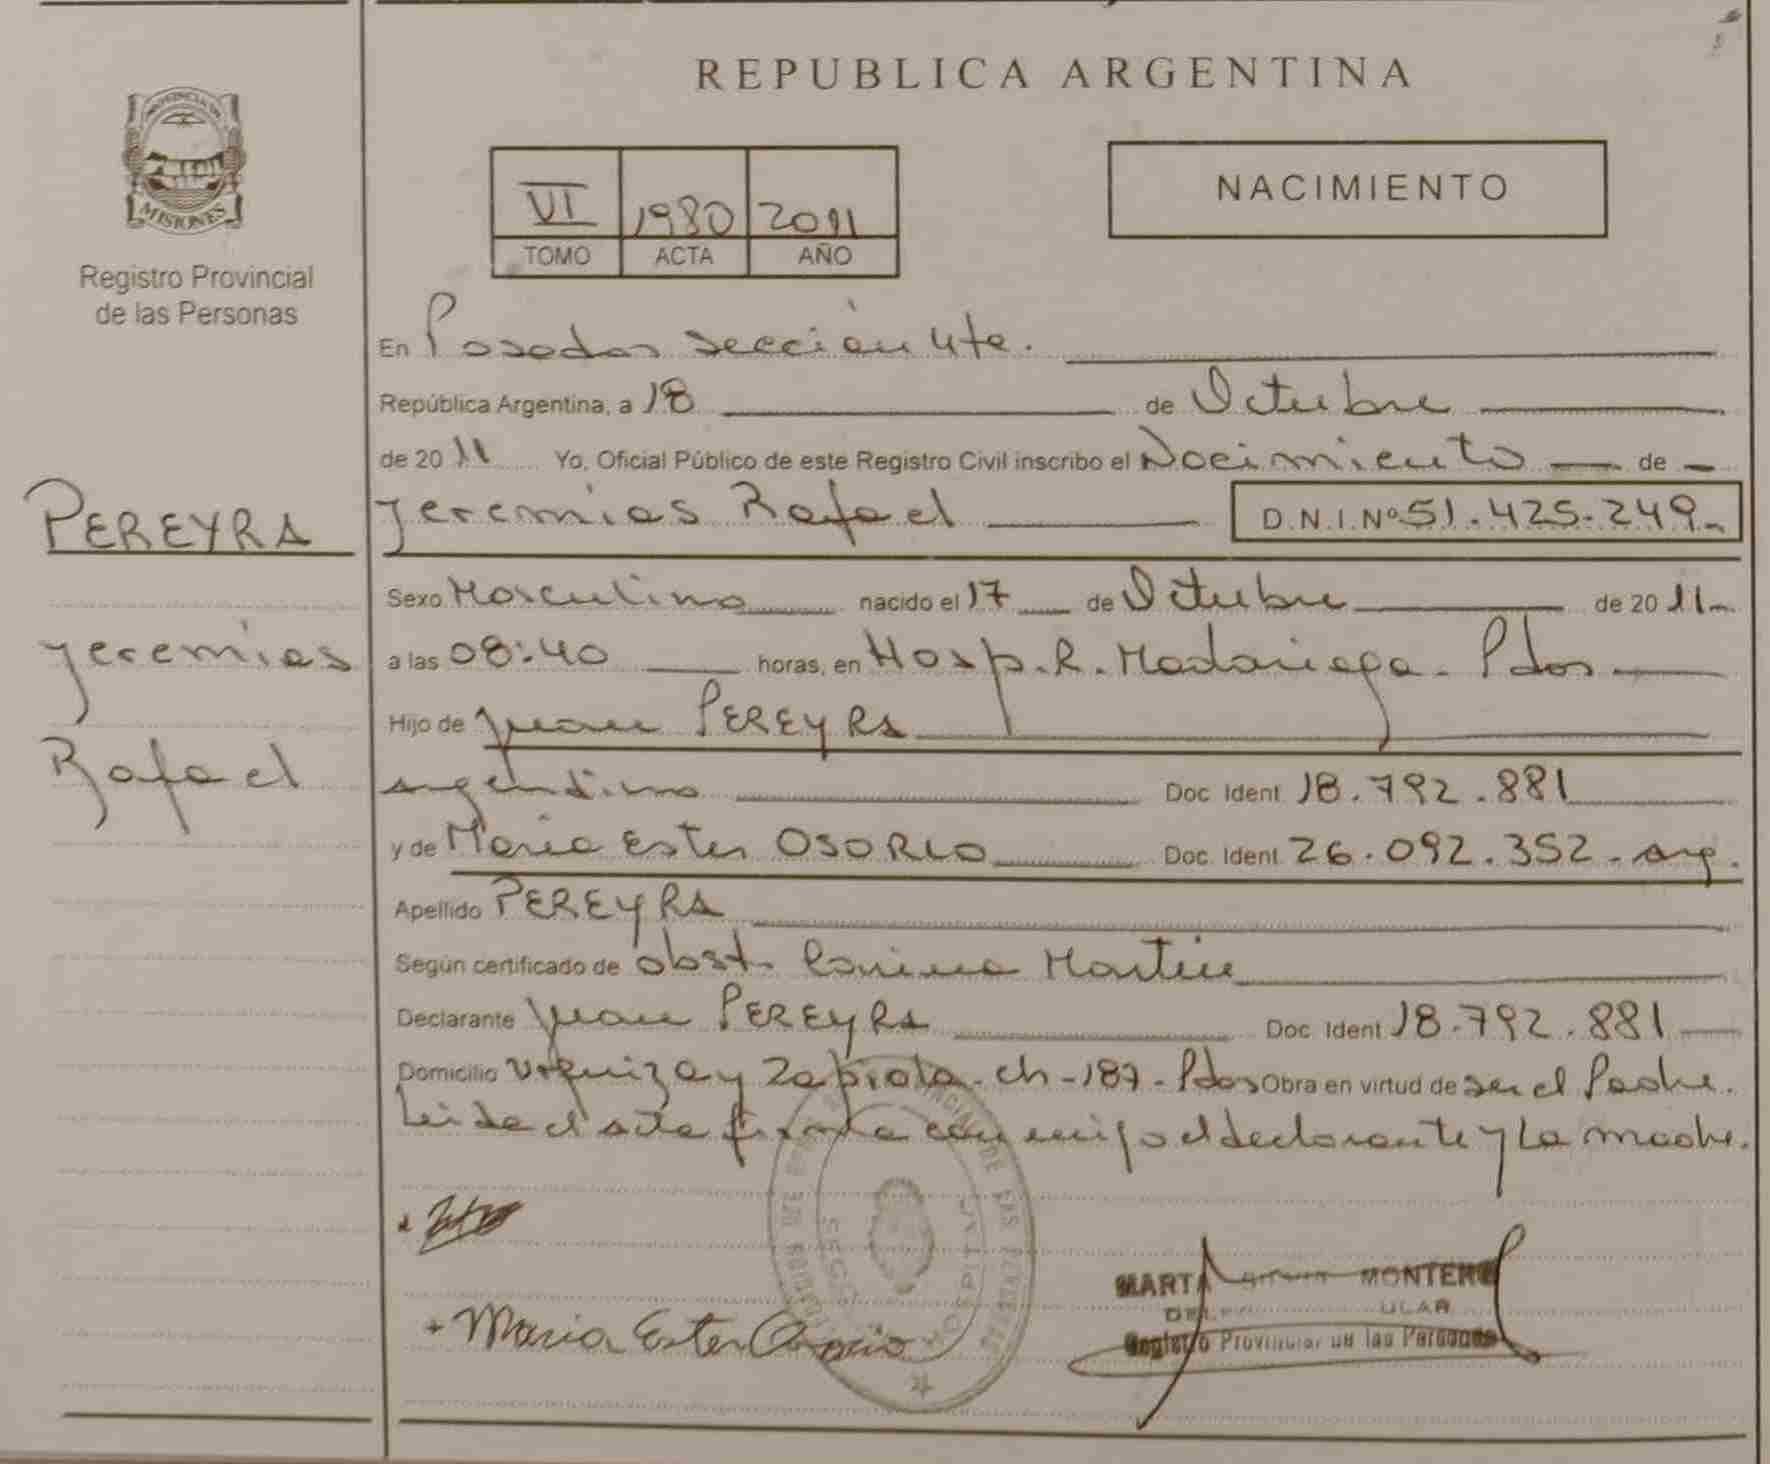 PROVINCIA DE
MISIONES
Registro Provincial
de las Personas
PEREYRA
Jeremias
Rafael
REPUBLICA ARGENTINA
VI 1980 2011
TOMO ACTA AÑO
NACIMIENTO
En Posadas sección 4ta.
República Argentina, a 18 de Octubre
de 2011 Yo, Oficial Público de este Registro Civil inscribo el Nacimiento de
Jeremias Rafael D.N.I. Nº 51.425.249.-
Sexo Masculino nacido el 17 de Octubre de 2011-
a las 08:40 horas, en Hosp. R. Madariaga - Pdas
Hijo de Juan PEREYRA
argentino Doc Ident 18.792.881
y de Maria Ester OSORIO Doc. Ident 26.092.352 - arg.
Apellido PEREYRA
Según certificado de obst. Corina Martin
Declarante Juan PEREYRA Doc Ident 18.792.881
Domicilio Urquiza y Zapiola - ch - 187 - Pdas Obra en virtud de ser el Padre.
Leida el acta firma conmigo el declarante y la madre.
Maria Ester Osorio
MARTA MONTERO
Registro Provincial de las Personas